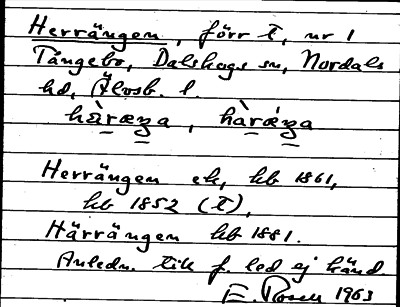 Herrängen, förr t, nr 1
Tångebo, Dalskogs sn, Nordals
hd, Älvsb. l.
hàræŋa, hàrǽŋa
Herrängen ek, hb 1861,
hb 1852 (t),
Härrängen hb 1881.
Anledn. till f. led ej känd
E. Rosell 1963